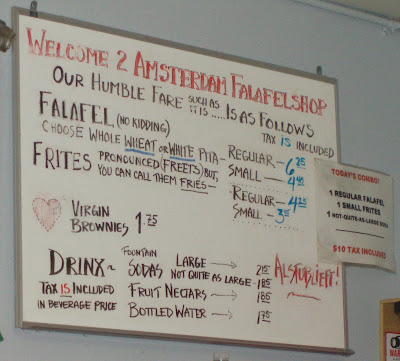 WELCOME 2 AMSTERDAM FALAFELSHOP
OUR HUMBLE FARE SUCH AS IT IS ..... IS AS FOLLOWS
TAX IS INCLUDED
FALAFEL (NO KIDDING)
CHOOSE WHOLE WHEAT OR WHITE PITA-
REGULAR- 6 25
SMALL- 4 40
FRITES PRONOUNCED (FREETS) BUT,
YOU CAN CALL THEM FRIES-
REGULAR- 4 25
SMALL- 3 25
VIRGIN
BROWNIES 1.75
DRINX~
TAX IS INCLUDED
IN BEVERAGE PRICE
FOUNTAIN
SODAS LARGE 2 15
NOT QUITE AS LARGE - 1.85
FRUIT NECTARS 1 85
BOTTLED WATER 1 75
ALSTUBLIEFT!
TODAY'S COMBO!
1 REGULAR FALAFEL
1 SMALL FRITES
1 NOT-QUITE-AS-LARGE SODA
$10 TAX INCLUDED